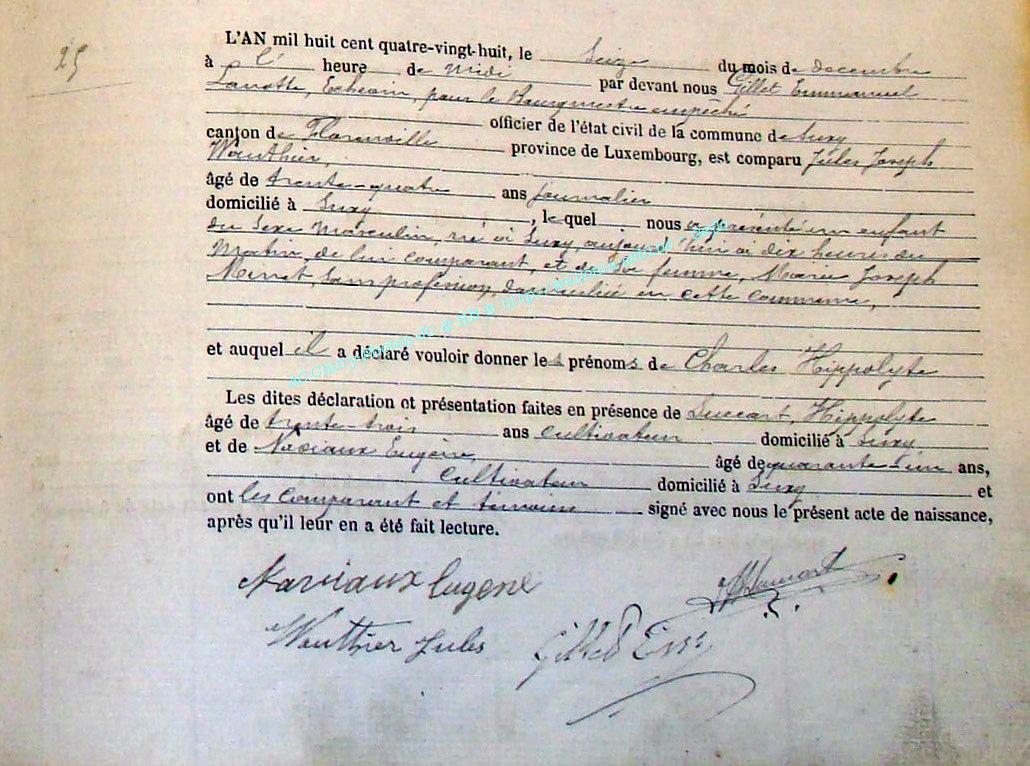 25
L'AN mil huit cent quatre-vingt-huit, le Seize du mois de décembre
à l' heure de midi par devant nous Gillet Emmanuel
Echevin, pour le Bourgmestre empêché
officier de l'état civil de la commune de Suxy
canton de Florenville province de Luxembourg, est comparu Jules Joseph
Wauthier,
âgé de trente-quatre ans journalier
domicilié à Suxy, lequel nous a présenté un enfant
du Sexe Masculin, né à Suxy, aujourd'hui à dix heures du
Matin, de lui comparant, et de Sa femme, Marie Joseph
Sans profession, domicilié en cette commune,
et auquel il a déclaré vouloir donner les prénoms de Charles Hippolyte
Les dites déclaration et présentation faites en présence de Hippolyte
âgé de trente-trois ans cultivateur domicilié à Suxy
et de Naviaux Eugène, âgé de quarante-un ans,
cultivateur domicilié à Suxy et
ont les comparant et témoins signé avec nous le présent acte de naissance,
après qu'il leur en a été fait lecture.
Naviaux Eugène
Wauthier Jules Gillet Em